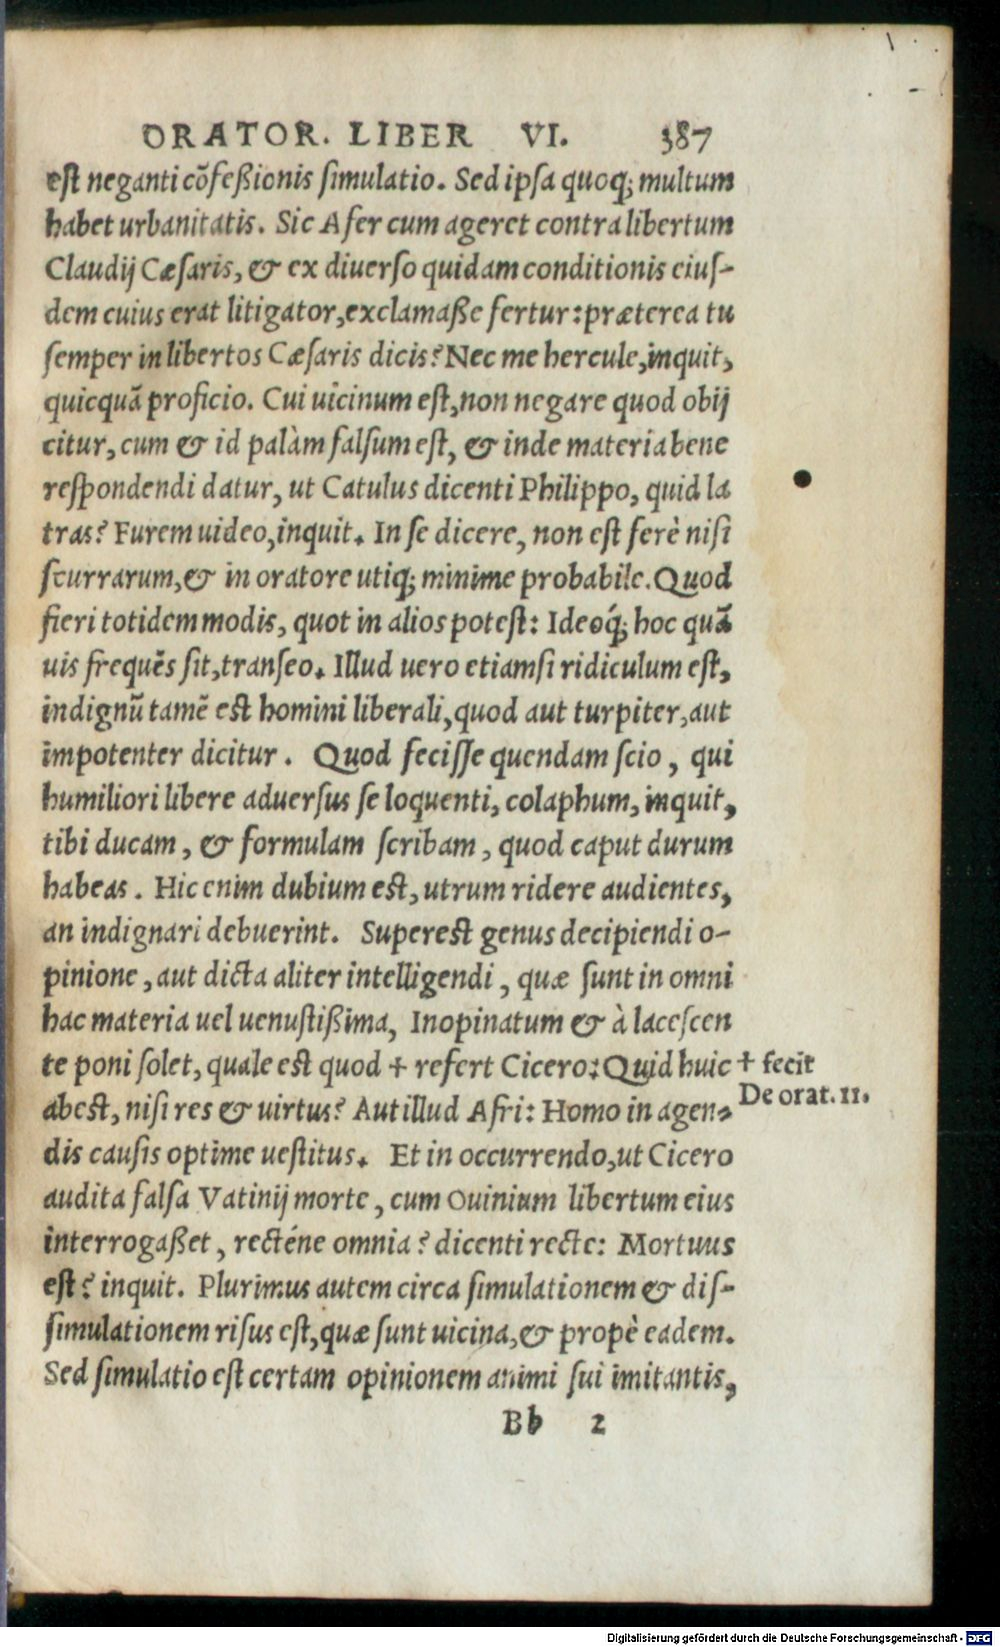 ORATOR. LIBER VI. 387
est neganti cõfeßionis simulatio. Sed ipsa quoq; multum
habet urbanitatis. Sic Afer cum ageret contra libertum
Claudij Cæsaris, & ex diuerso quidam conditionis eius-
dem cuius erat litigator, exclamaße fertur: præterea tu
semper in libertos Cæsaris dicis? Nec me hercule, inquit,
quicquã proficio. Cui uicinum est, non negare quod obij
citur, cum & id palàm falsum est, & inde materia bene
respondendi datur, ut Catulus dicenti Philippo, quid la
tras? Furem uideo, inquit. In se dicere, non est ferè nisi
scurrarum, & in oratore utiq; minime probabile. Quod
fieri totidem modis, quot in alios potest: Ideoq́; hoc quã
uis frequẽs sit, transeo. Illud uero etiamsi ridiculum est,
indignũ tamẽ est homini liberali, quod aut turpiter, aut
impotenter dicitur. Quod fecisse quendam scio, qui
humiliori libere aduersus se loquenti, colaphum, inquit,
tibi ducam, & formulam scribam, quod caput durum
habeas. Hic enim dubium est, utrum ridere audientes,
an indignari debuerint. Superest genus decipiendi o-
pinione, aut dicta aliter intelligendi, quæ sunt in omni
hac materia uel uenustißima, Inopinatum & à lacescen
te poni solet, quale est quod + refert Cicero: Quid huic
+ fecit
De orat. 11.
abest, nisi res & uirtus? Aut illud Afri: Homo in agen-
dis causis optime uestitus. Et in occurrendo, ut Cicero
audita falsa Vatinij morte, cum Ouinium libertum eius
interrogaßet, recténe omnia? dicenti recte: Mortuus
est? inquit. Plurimus autem circa simulationem & dis-
simulationem risus est, quæ sunt uicina, & propè eadem.
Sed simulatio est certam opinionem animi sui imitantis,
Bb 2
Digitalisierung gefördert durch die Deutsche Forschungsgemeinschaft - DFG